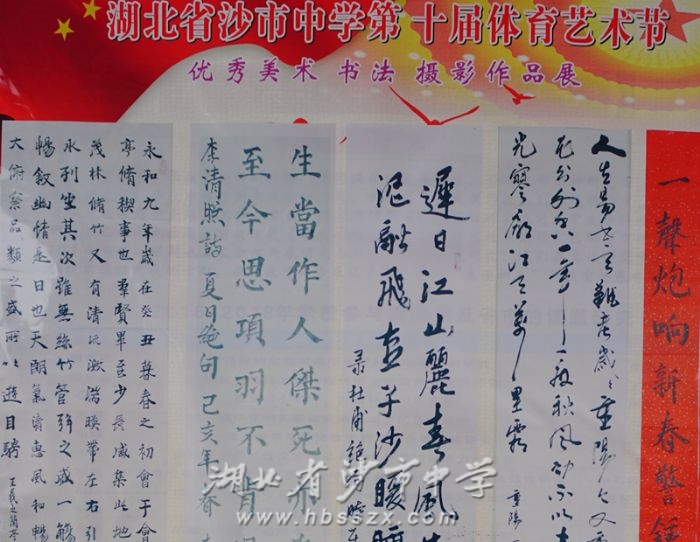 湖北省沙市中学第十届体育艺术节
优秀美术 书法 摄影作品展
一聲炮响新春警
人生易老天難老歲歲重陽今又重
光寥廓江天萬里霜
重陽
遲日江山麗春風
泥融飛燕子沙暖
录杜甫绝句
生當作人傑死亦
至今思項羽不肯
李清照詩夏日絶句己亥年春
永和九年歲在癸丑暮春之初會于會
亭脩稧事也羣賢畢至少長咸集此地
茂林脩竹又有清流激湍暎帶左右引
水列坐其次雖無絲竹管弦之盛一觴
暢叙幽情是日也天朗氣清惠風和暢
大俯察品類之盛所以遊目騁
王羲之蘭亭
湖北省沙市中学
www.hbsszx.com